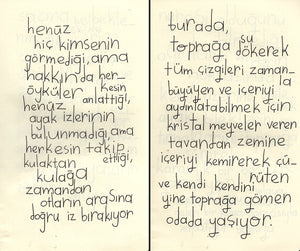 henüz
hiç kimsenin
görmediği, ama
hakkında her-
kesin
öyküler anlattığı,
henüz
ayak izlerinin
bulunmadığı, ama
herkesin takip
ettiği,
kulaktan
kulağa
zamandan
otların arasına
doğru iz bırakıyor
burada,
toprağa su dökerek
tüm çizgileri zaman-
la
büyüyen ve içeriyi
aydınlatabilmek için
kristal meyveler veren
tavandan zemine
içeriyi kemirerek çü-
rüten
ve kendi kendini
yine toprağa gömen
odada yaşıyor.